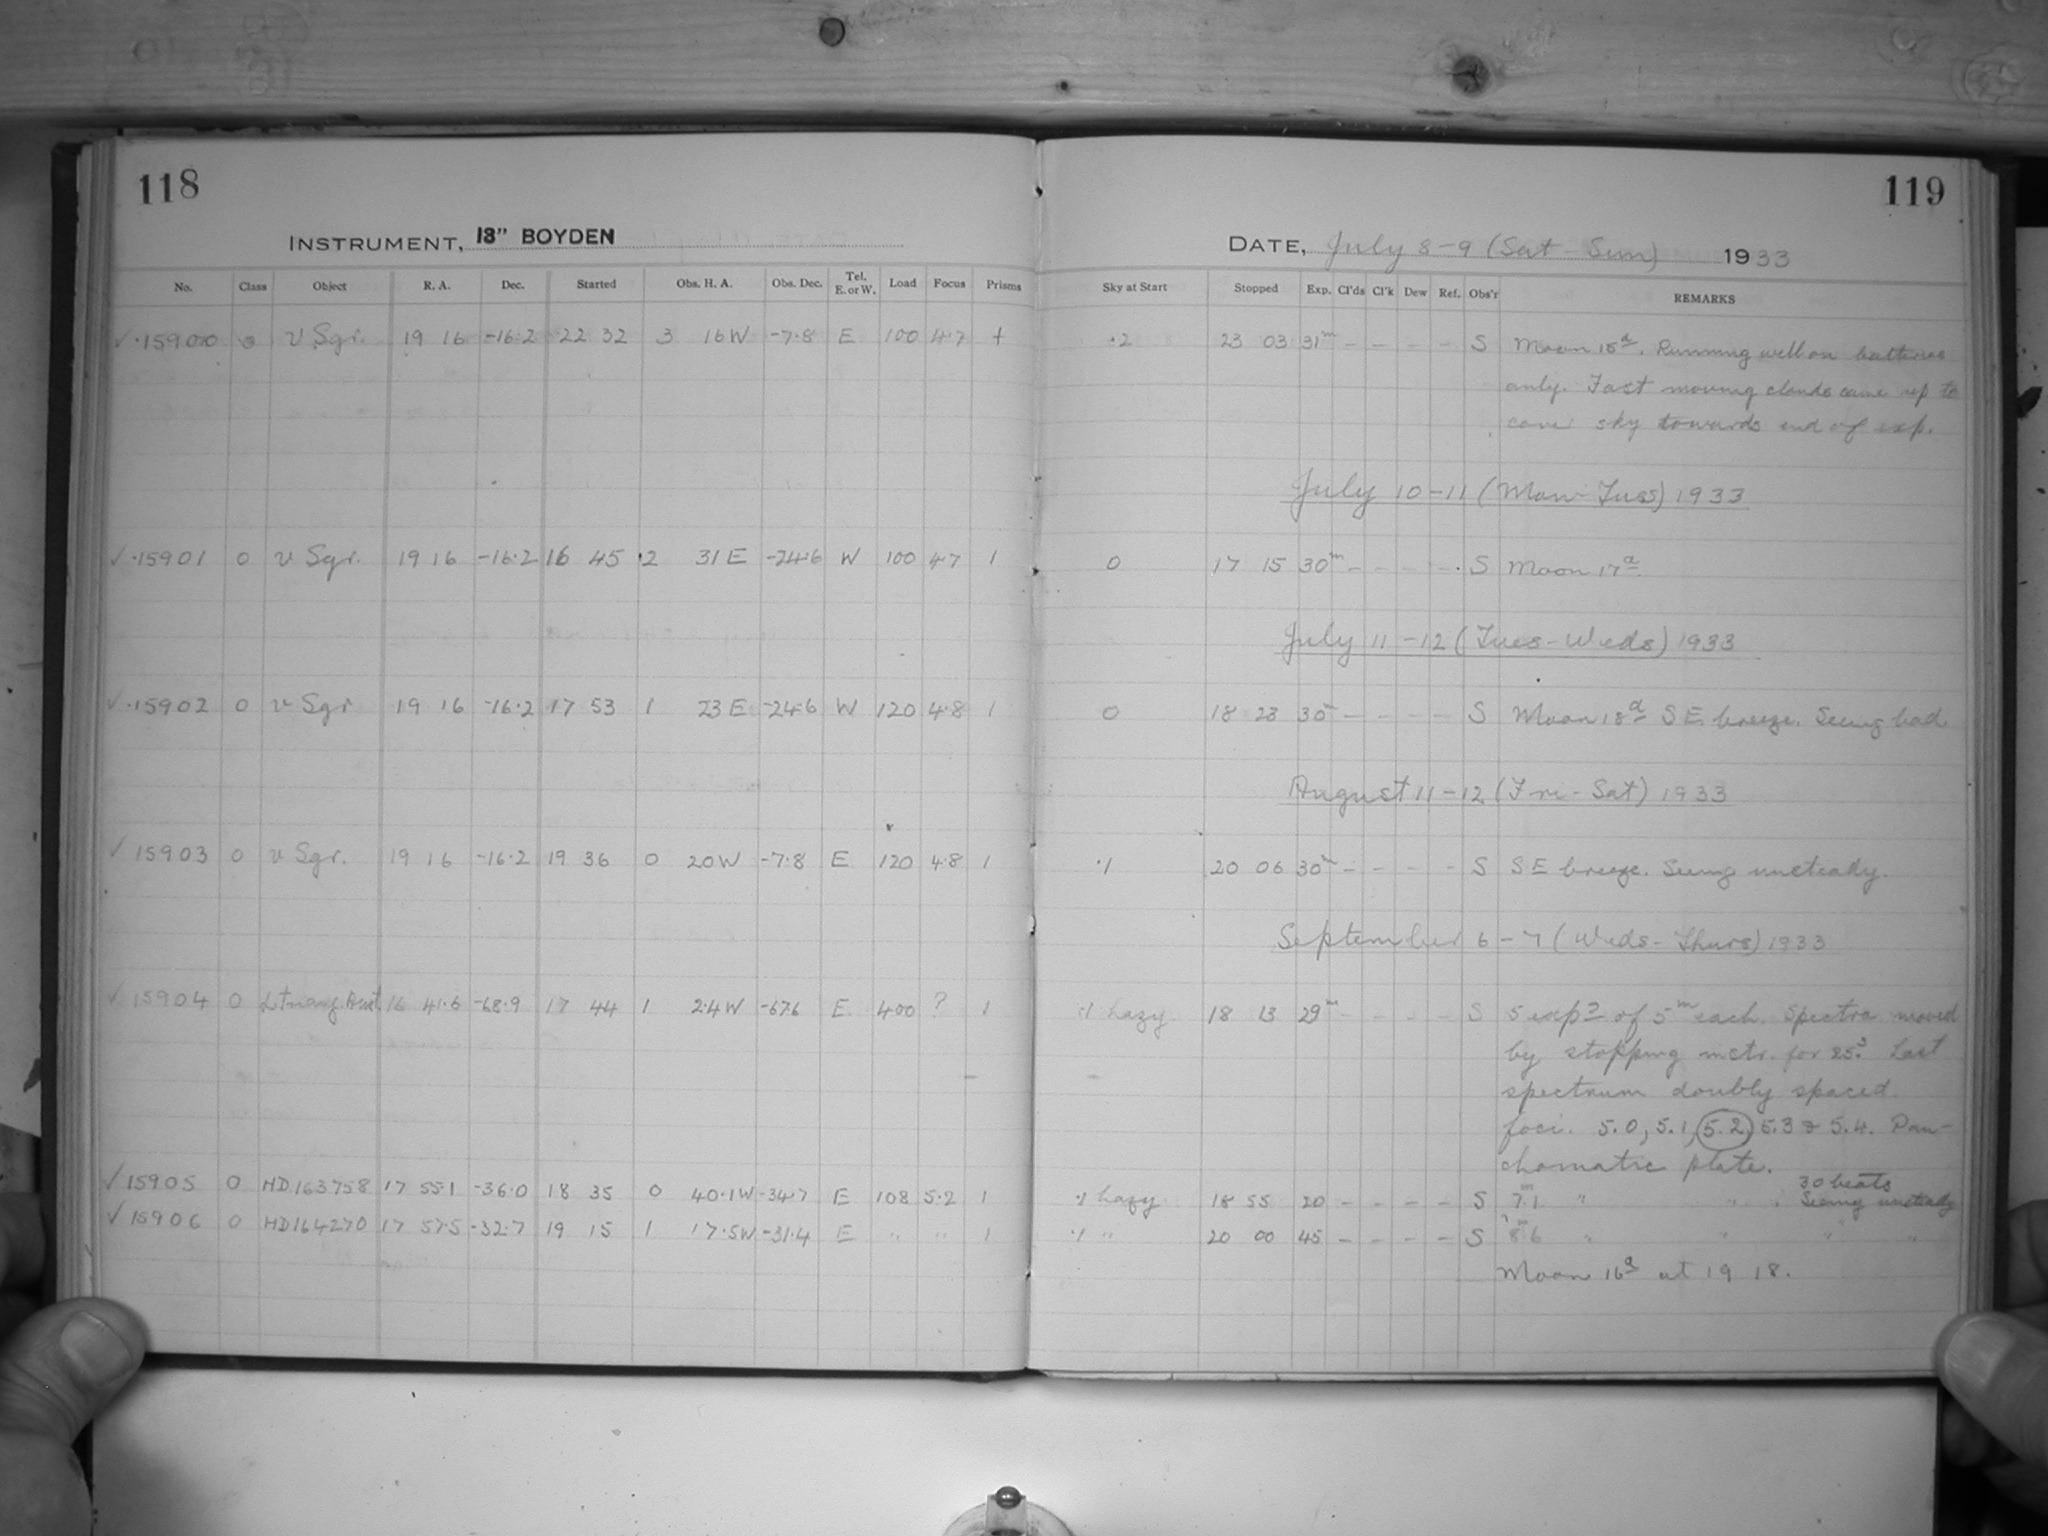 118
INSTRUMENT, 13" BOYDEN
No. Class Object R. A. Dec. Started Obs. H. A. Obs. Dec. Tel. E. or W. Load Focus Prisms
✓ ·15900 υ Sgr. 19 16 -16·2 22 32 3 16 W -7·8 E 100 4·7
✓ ·15901 0 υ Sgr. 19 16 -16·2 16 45 2 31 E -24·6 W 100 4·7 1
✓ ·15902 0 υ Sgr 19 16 -16·2 17 53 1 23 E -24·6 W 120 4·8 1
✓ 15903 0 υ Sgr. 19 16 -16·2 19 36 0 20 W -7·8 E 120 4·8 1
✓ 15904 0 16 41·6 -68·9 17 44 1 2·4 W -67·6 E 400 ? 1
✓ 15905 0 HD 163758 17 55·1 -36·0 18 35 0 40·1 W -34·7 E 108 5·2 1
✓ 15906 0 HD 164270 17 57·5 -32·7 19 15 1 17·5 W -31·4 E " " 1
119
DATE, July 8-9 (Sat - Sun) 1933
Sky at Start Stopped Exp. Cl'ds Cl'k Dew Ref. Obs'r REMARKS
·2 23 03 31m - - - - S Moon 15d. Running well on batteries
only. Fast moving clouds came up to
cover sky towards end of exp.
July 10-11 (Mon-Tues) 1933
0 17 15 30m - - - - S Moon 17d
July 11-12 (Tues-Weds) 1933
0 18 23 30m - - - - S Moon 18d S E. breeze. Seeing bad.
August 11-12 (Fri-Sat) 1933
·1 20 06 30m - - - - S S E breeze. Seeing unsteady.
September 6-7 (Weds-Thurs) 1933
·1 hazy 18 13 29m - - - - S 5 exps of 5m each. Spectra moved
by stopping mctr. for 25s. Last
spectrum doubly spaced.
foci. 5.0, 5.1, 5.2, 5.3 & 5.4. Pan-
chomatic plate.
30 beats
·1 hazy 18 55 20 - - - - S 7·1m " " Seeing unsteady
·1 " 20 00 45 - - - - S 8·6m " " " "
Moon 16d at 19 18.